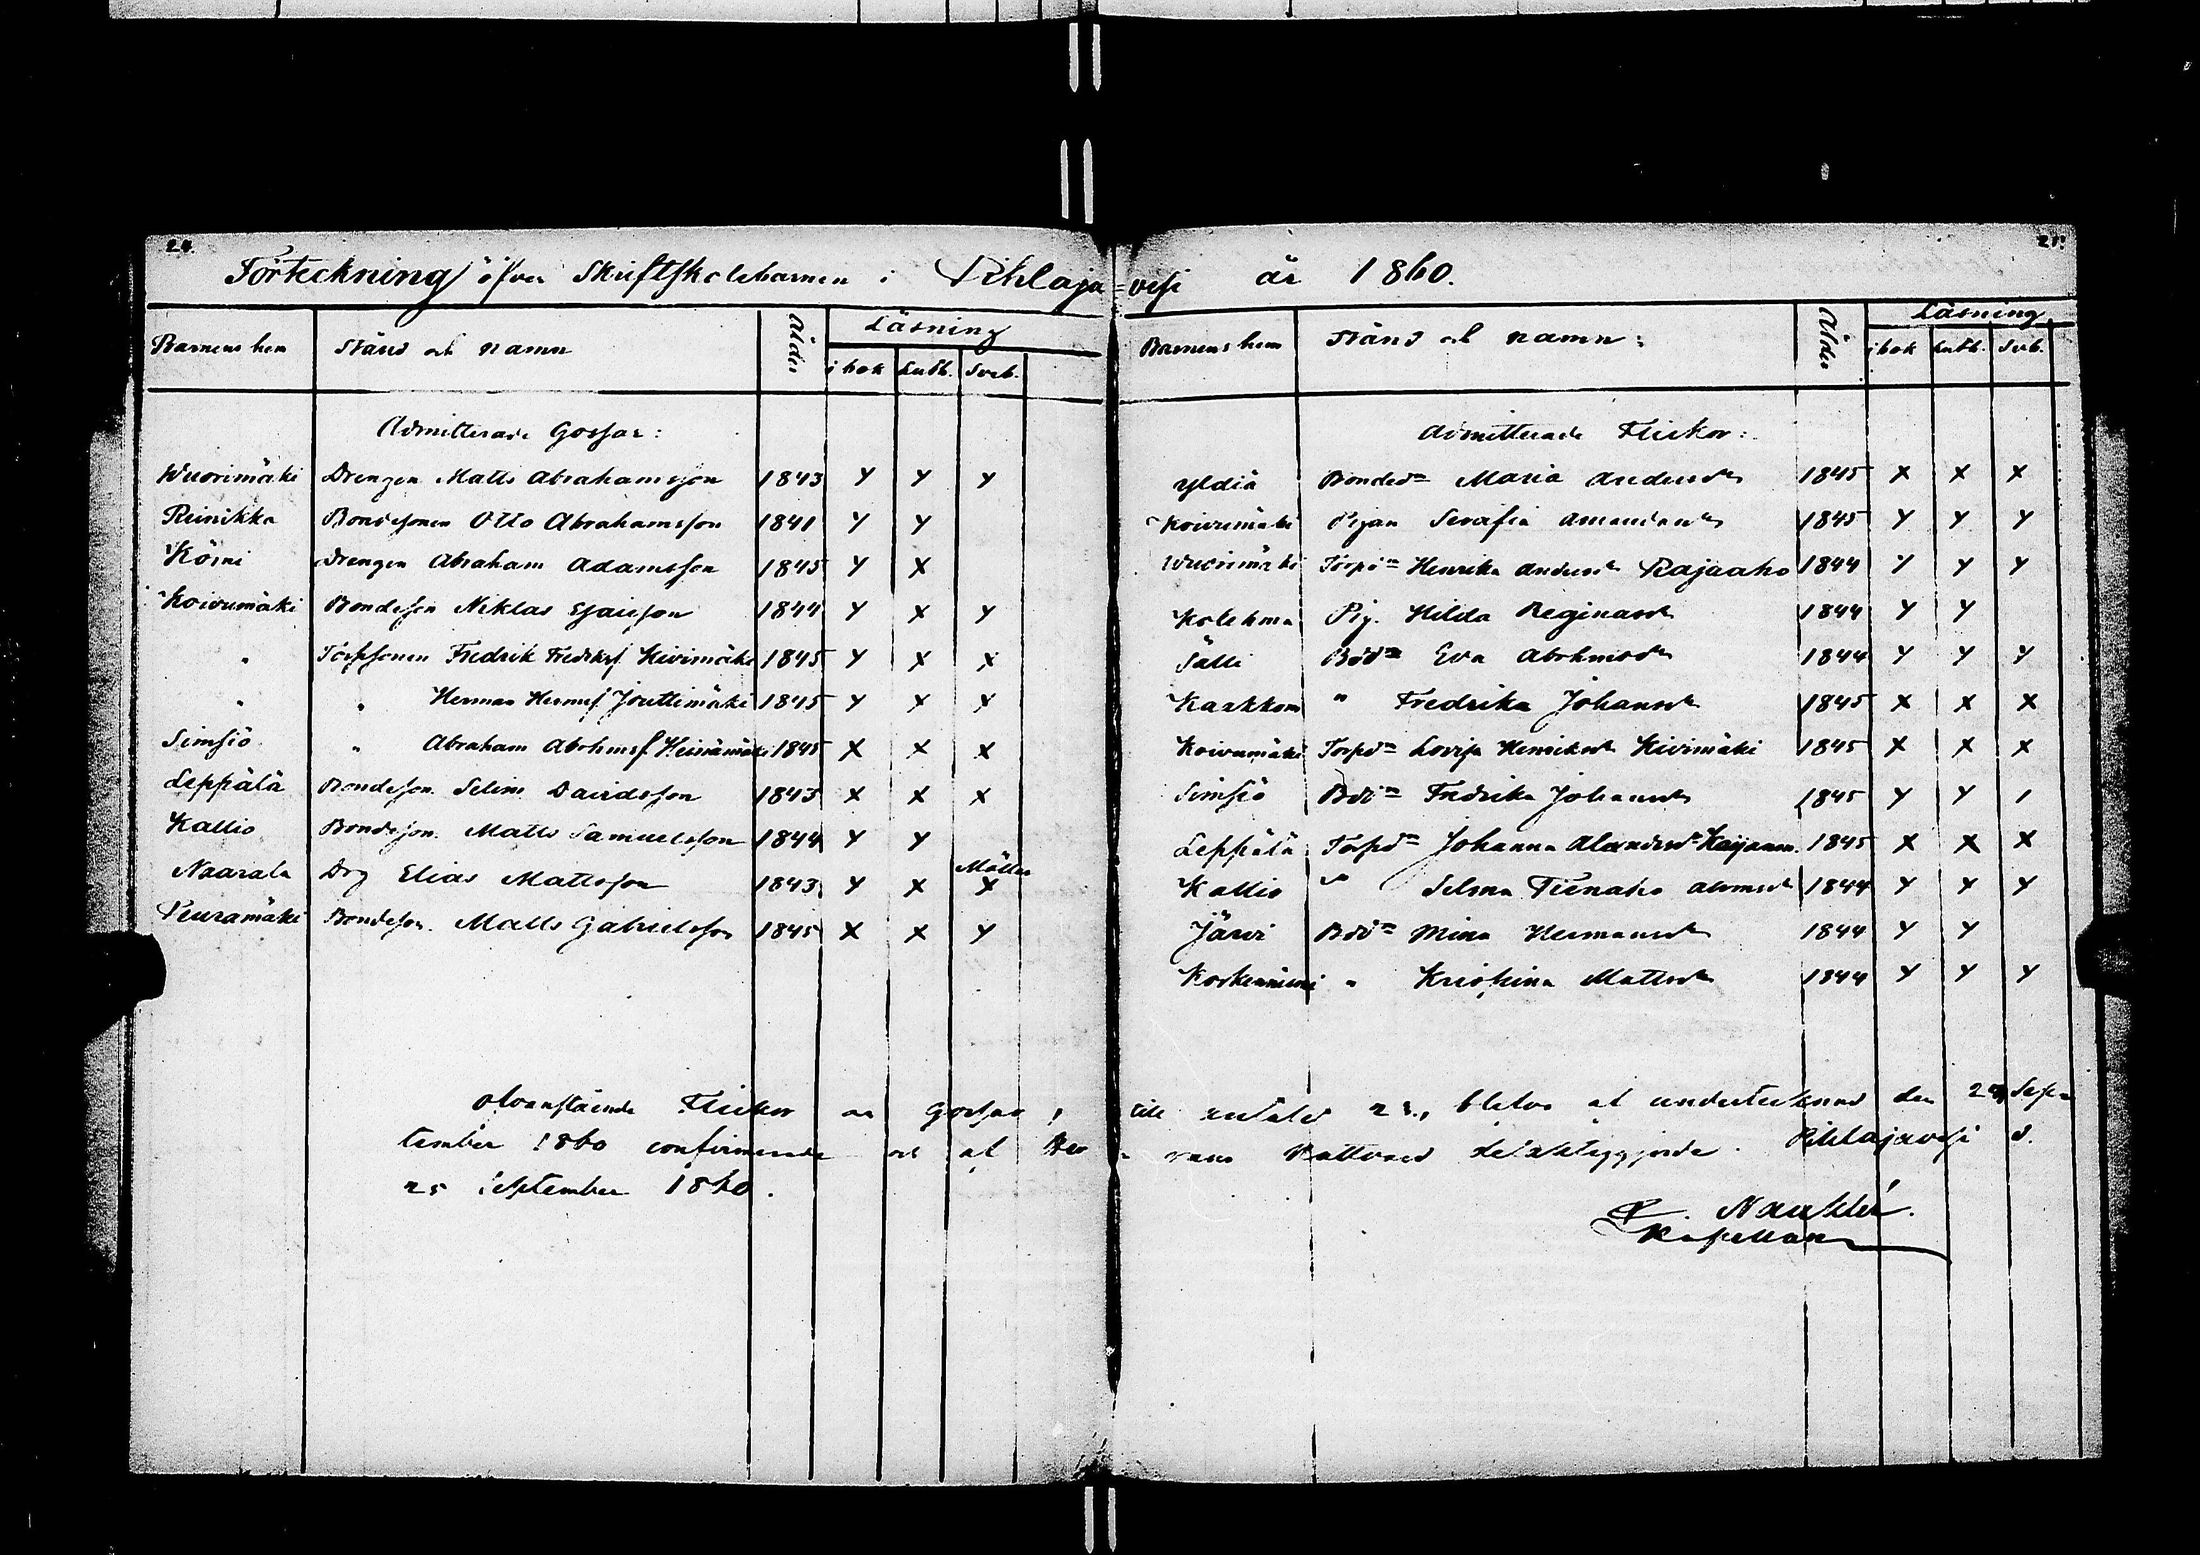 24.
Förteckning öfver Skriftskolebarnen i Pihlaja-
Barnens hem Stånd och namn Ålder Läsning
i bok Luth. Sveb.
Admitterade Gossar:
Wuorimäki Drengen Matts Abrahamsson 1843 Y Y Y
Reinikka Bondesonen Otto Abrahamsson 1841 Y Y
Körni Drengen Abraham Adamsson 1845 Y X
Koivumäki Bondeson Niklas Esaiesson 1844 Y X Y
" Torpsonen Fredrik Fredrksf Kivimäki 1845 Y X X
" " Herman Hermsf Jouttimäki 1845 Y X X
Simsiö " Abraham Abrhmsf Heinämäki 1845 X X X
Leppälä Bondeson Selim Davidsson 1843 X X X
Kallio Bondeson. Matts Samuelsson 1844 Y Y
Naarala Drg Elias Mattsson 1843 Y X X
Peuramäki Bondeson. Matts Gabrielsson 1845 X X Y
visi år 1860.
Barnens hem Stånd och namn: Ålder Läsning
i bok Luth. Sveb.
Admitterade Flickor:
Yldiä Bonded:n Maria Andersdr 1845 X X X
Koivumäki Pigan Serafia Amandasdr 1845 Y Y Y
Wuorimäki Torpd:n Henrika Andersdr Rajaaho 1844 Y Y Y
Kolehma Pig. Hilda Reginasdr 1844 Y Y
Sälli Bdd:n Eva Abrhmsdr 1844 Y Y Y
Karkkom " Fredrika Johansdr 1845 X X X
Koivumäki Torpd:n Lovisa Henriksdr Kivimäki 1845 X X X
Simsiö Bdd:n Fredrika Johansdr 1845 Y Y 1
Leppälä Torpd:n Johanna Alexandersdr 1845 X X X
Kallio " Selma Tienaho 1844 Y Y Y
Järvi Bdd:n Mina Hermansdr 1844 Y Y
Koskenniemi " Kristina Mattsdr 1844 Y Y Y
Ofvanstående Flickor och gossar, till antalet 23, blefvo af undertecknad den Sep-
tember 1860 confirmerade och af Her- rans Nattvard delaktiggjorde. Pihlajavesi d.
25 September 1860.
Nauklér.
Kapellan